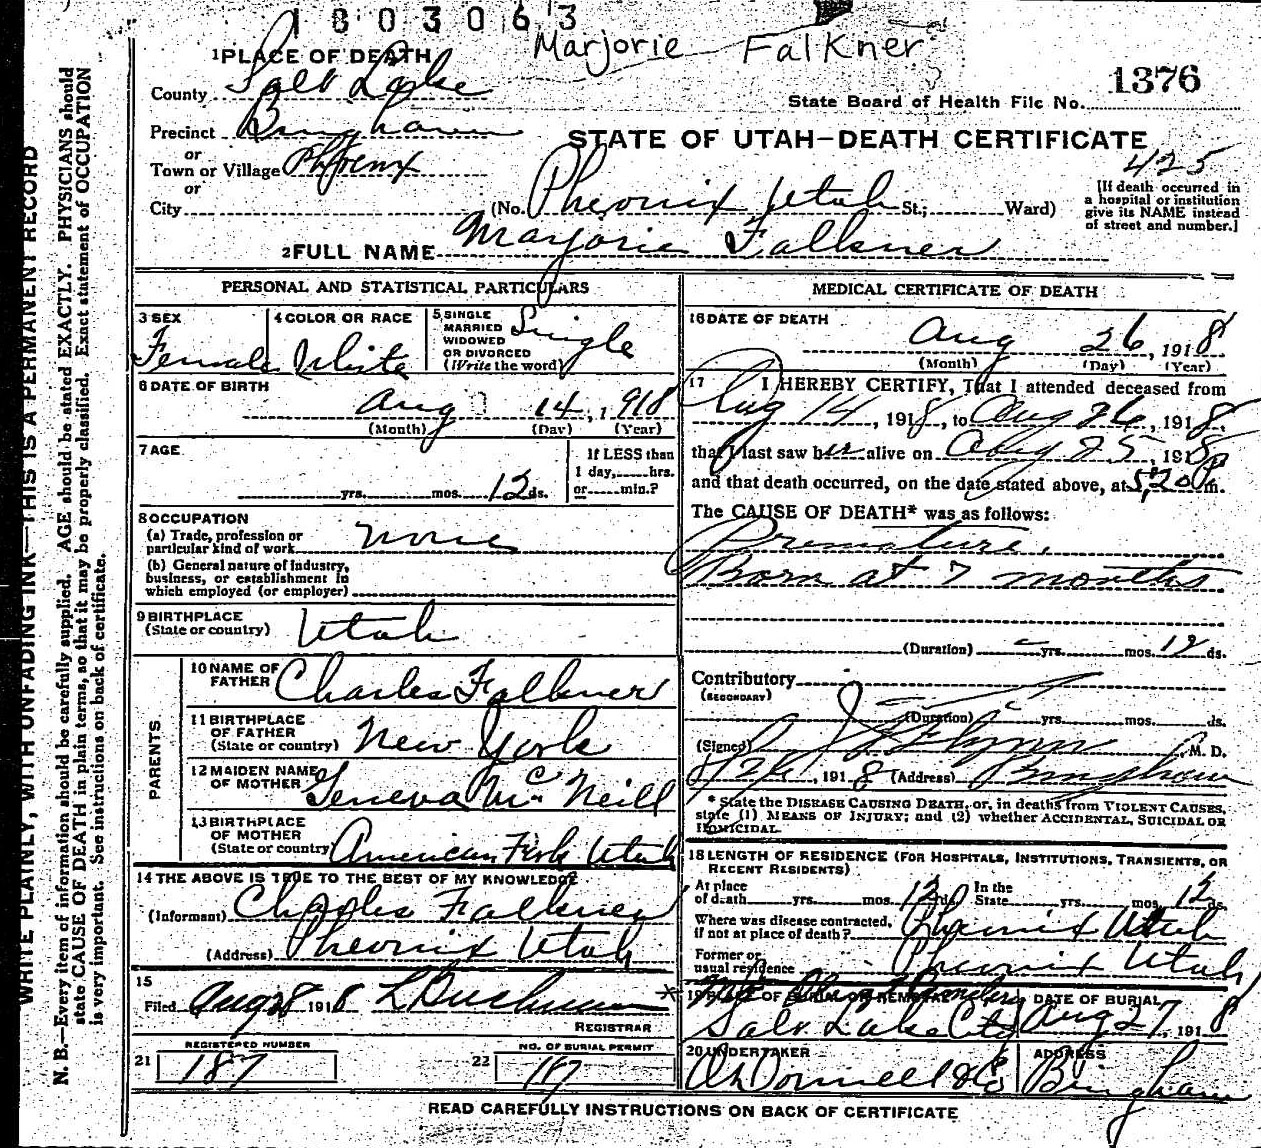 1803063
Marjorie Falkner
1376
1 PLACE OF DEATH
County Salt Lake
State Board of Health File No.
Precinct Bingham
STATE OF UTAH—DEATH CERTIFICATE
425
or
Town or Village Phoenix
or
City (No. Pheonix Utah St.; Ward)
[If death occurred in
a hospital or institution
give its NAME instead
of street and number.]
2 FULL NAME Marjorie Falkner
WRITE PLAINLY, WITH UNFADING INK—THIS IS A PERMANENT RECORD
N. B.—Every item of information should be carefully supplied. AGE should be stated EXACTLY. PHYSICIANS should
state CAUSE OF DEATH in plain terms, so that it may be properly classified. Exact statement of OCCUPATION
is very important. See instructions on back of certificate.
PERSONAL AND STATISTICAL PARTICULARS
3 SEX
Female
4 COLOR OR RACE
White
5 SINGLE
MARRIED
WIDOWED
OR DIVORCED
(Write the word)
Single
6 DATE OF BIRTH
Aug 14, 1918
(Month) (Day) (Year)
7 AGE
yrs. mos. 12 ds.
If LESS than
1 day, hrs.
or min.?
8 OCCUPATION
(a) Trade, profession or
particular kind of work none
(b) General nature of industry,
business, or establishment in
which employed (or employer)
9 BIRTHPLACE
(State or country) Utah
PARENTS
10 NAME OF
FATHER Charles Falkner
11 BIRTHPLACE
OF FATHER
(State or country) New York
12 MAIDEN NAME
OF MOTHER Geneva McNeill
13 BIRTHPLACE
OF MOTHER
(State or country) American Fork Utah
14 THE ABOVE IS TRUE TO THE BEST OF MY KNOWLEDGE
(Informant) Charles Falkner
(Address) Pheonix Utah
15
Filed Aug 28 1918
REGISTRAR
21
REGISTERED NUMBER
187
22
NO. OF BURIAL PERMIT
187
MEDICAL CERTIFICATE OF DEATH
16 DATE OF DEATH
Aug 26, 1918
(Month) (Day) (Year)
17 I HEREBY CERTIFY, That I attended deceased from
Aug 14, 1918, to Aug 26, 1918,
that I last saw her alive on Aug 25, 1918,
and that death occurred, on the date stated above, at 5:20 P m.
The CAUSE OF DEATH* was as follows:
Premature.
Born at 7 months
(Duration) yrs. mos. 12 ds.
Contributory
(SECONDARY)
(Duration) yrs. mos. ds.
(Signed) Flynn M. D.
8/26, 1918 (Address) Bingham
* State the DISEASE CAUSING DEATH, or, in deaths from VIOLENT CAUSES,
state (1) MEANS OF INJURY; and (2) whether ACCIDENTAL, SUICIDAL OR
HOMICIDAL.
18 LENGTH OF RESIDENCE (FOR HOSPITALS, INSTITUTIONS, TRANSIENTS, OR
RECENT RESIDENTS)
At place
of death yrs. mos. 12 ds.
In the
State yrs. mos. 12 ds.
Where was disease contracted,
if not at place of death? Pheonix Utah
Former or
usual residence Pheonix Utah
19 PLACE OF BURIAL OR REMOVAL
Mt. Olivet Cemetery
Salt Lake City
DATE OF BURIAL
Aug 27, 1918
20 UNDERTAKER
O'Donnell & Co
ADDRESS
Bingham
READ CAREFULLY INSTRUCTIONS ON BACK OF CERTIFICATE